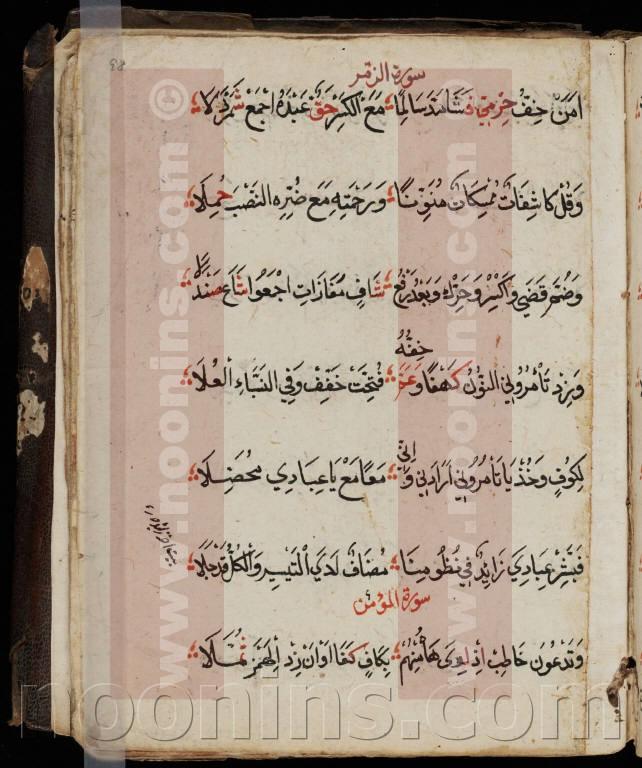 سورة الزمر
امن خف حرمي فشا مد سالما مع الكسر حق عبده اجمع شمردلا
وقل كاشفات ممسكات منونا ورحمته مع ضره النصب حملا
وضم قضى واكسر وحرك وبعد رفع شاف مفازات اجمعوا شاع صندلا
خفه
وزد تأمروني النون كهفا وعم فتحت خفف وفي النبأ العلا
لكوف وخذ يا تأمروني ارادني واني معا مع يا عبادي محصلا
فبشر عبادي زايد في نظومنا مضاف لدى التيسير والكل قد جلا
سورة المؤمن
وتدعون خاطب اذ لوى هاء منهم بكاف كفا او ان زد الهمز ثملا
www.noonins.com ©
www.noonins.com ©
noonins.com ©